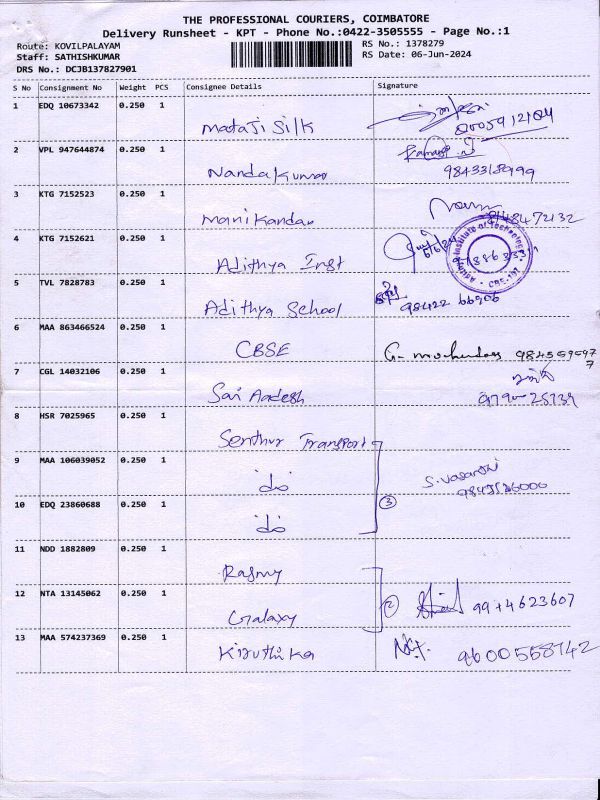 THE PROFESSIONAL COURIERS, COIMBATORE
Delivery Runsheet - KPT - Phone No.:0422-3505555 - Page No.:1
Route: KOVILPALAYAM RS No.: 1378279
Staff: SATHISHKUMAR RS Date: 06-Jun-2024
DRS No.: DCJB137827901
S No Consignment No Weight PCS Consignee Details Signature
1 EDQ 10673342 0.250 1 Mataji Silk
2 VPL 947644874 0.250 1 Nandakumar
3 KTG 7152523 0.250 1 Manikandan
4 KTG 7152621 0.250 1 Adithya Inst
5 TVL 7828783 0.250 1 Adithya School 98422 66906
6 MAA 863466524 0.250 1 CBSE
7 CGL 14032106 0.250 1 Sai Aadesh
8 HSR 7025965 0.250 1 Senthur Transport
9 MAA 106039052 0.250 1 do S. Vasanthi
10 EDQ 23860688 0.250 1 do 3
11 NDD 1882809 0.250 1 Rasmy
12 NTA 13145062 0.250 1 Galaxy 2
13 MAA 574237369 0.250 1 Kiruthika 9600558742